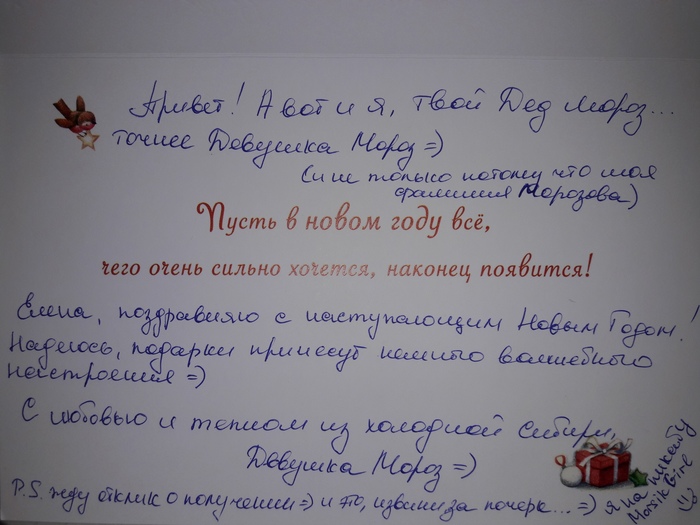 Привет! А вот и я, твой Дед Мороз...
точнее Девушка Мороз =)
(и не только потому что моя
фамилия Морозова)
Пусть в новом году всё,
чего очень сильно хочется, наконец появится!
Елена, поздравляю с наступающим Новым Годом!
Надеюсь, подарки принесут немного волшебного
настроения =)
С любовью и теплом из холодной Сибири,
Девушка Мороз =)
P.S. жду отклик о получении =) и это, извини за почерк... =)
я на пикабу